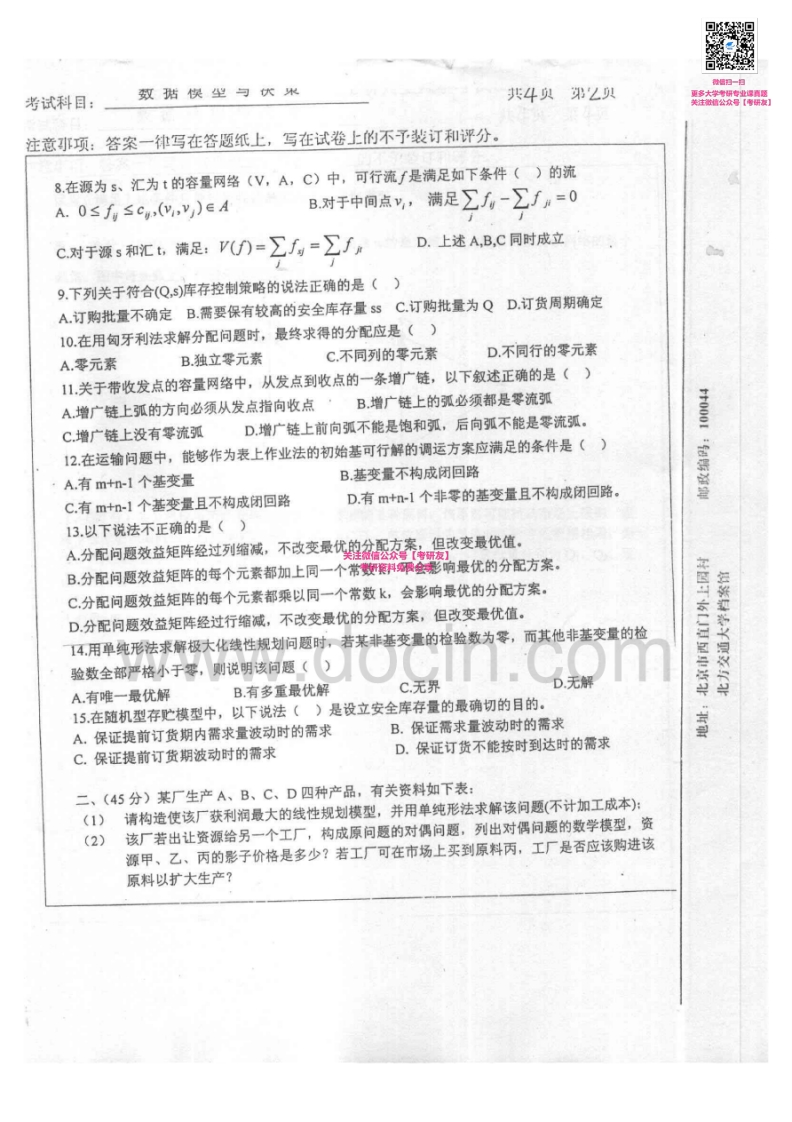 微信扫一扫
更多大学考研专业课真题
关注微信公众号【考研友】
考试科目： 数据模型与决策 共4页 第2页
注意事项：答案一律写在答题纸上，写在试卷上的不予装订和评分。
8.在源为 s、汇为 t 的容量网络（V，A，C）中，可行流 f 是满足如下条件（ ）的流
A. 0≤f_{ij}≤c_{ij},(v_i,v_j)∈A B.对于中间点 v_i， 满足∑_j f_{ij}-∑_j f_{ji}=0
C.对于源 s 和汇 t，满足：V(f)=∑_j f_{sj}=∑_j f_{jt} D. 上述 A,B,C 同时成立
9.下列关于符合(Q,s)库存控制策略的说法正确的是（ ）
A.订购批量不确定 B.需要保有较高的安全库存量 ss C.订购批量为 Q D.订货周期确定
10.在用匈牙利法求解分配问题时，最终求得的分配应是（ ）
A.零元素 B.独立零元素 C.不同列的零元素 D.不同行的零元素
11.关于带收发点的容量网络中，从发点到收点的一条增广链，以下叙述正确的是（ ）
A.增广链上弧的方向必须从发点指向收点 B.增广链上的弧必须都是零流弧
C.增广链上没有零流弧 D.增广链上前向弧不能是饱和弧，后向弧不能是零流弧。
12.在运输问题中，能够作为表上作业法的初始基可行解的调运方案应满足的条件是（ ）
A.有 m+n-1 个基变量 B.基变量不构成闭回路
C.有 m+n-1 个基变量且不构成闭回路 D.有 m+n-1 个非零的基变量且不构成闭回路。
13.以下说法不正确的是（ ）
A.分配问题效益矩阵经过列缩减，不改变最优的分配方案，但改变最优值。
关注微信公众号【考研友】
B.分配问题效益矩阵的每个元素都加上同一个常数 k，不会影响最优的分配方案。
C.分配问题效益矩阵的每个元素都乘以同一个常数 k，会影响最优的分配方案。
D.分配问题效益矩阵经过行缩减，不改变最优的分配方案，但改变最优值。
www.docin.com
14.用单纯形法求解极大化线性规划问题时，若某非基变量的检验数为零，而其他非基变量的检
验数全部严格小于零，则说明该问题（ ）
A.有唯一最优解 B.有多重最优解 C.无界 D.无解
15.在随机型存贮模型中，以下说法（ ）是设立安全库存量的最确切的目的。
A. 保证提前订货期内需求量波动时的需求 B. 保证需求量波动时的需求
C. 保证提前订货期波动时的需求 D. 保证订货不能按时到达时的需求
二、（45 分）某厂生产 A、B、C、D 四种产品，有关资料如下表：
（1） 请构造使该厂获利润最大的线性规划模型，并用单纯形法求解该问题(不计加工成本)；
（2） 该厂若出让资源给另一个工厂，构成原问题的对偶问题，列出对偶问题的数学模型，资
源甲、乙、丙的影子价格是多少？若工厂可在市场上买到原料丙，工厂是否应该购进该
原料以扩大生产？
地址：北京市西直门外上园村 邮政编码：100044
北方交通大学档案馆